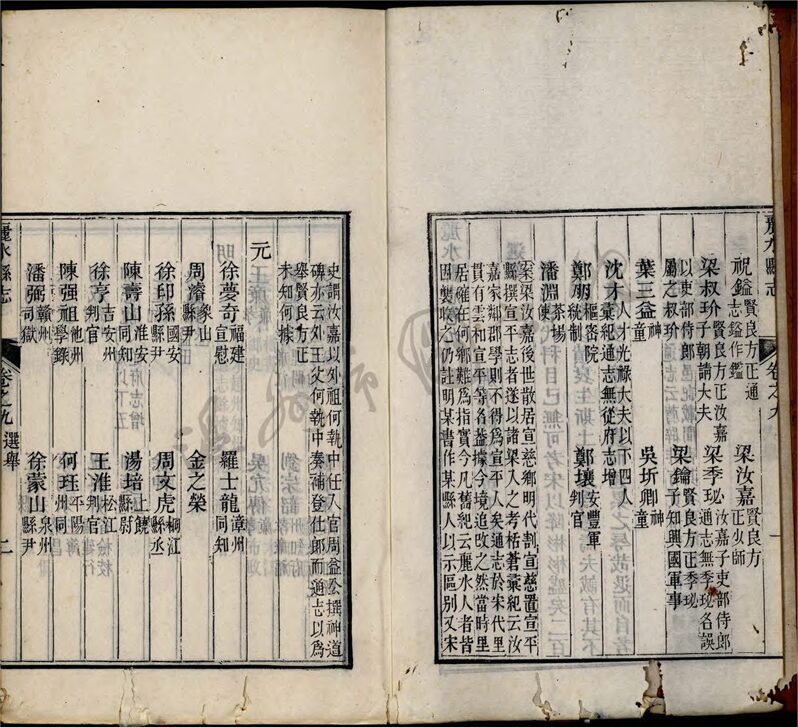 麗水縣志
卷之九
祝鎰賢良方正通志鎰作鑑
梁汝嘉賢良方正少師
梁叔玠賢良方正汝嘉子朝請大夫
梁季珌汝嘉子吏部侍郎通志無季珌名誤
以吏部侍郎屬之叔玠
梁鑰賢良方正季珌子知興國軍事
葉三益神童
吳圻卿神童
人才光祿大夫以下四人
沈才彙紀通志無從府志增
鄭肋樞密院統制
鄭壤安豐軍判官
潘淵茶場使
案梁汝嘉後世散居宣慈鄉明代割宣慈置宣平
縣撰宣平志者遂以諸梁入之考栝蒼彙紀云汝
嘉家鄰郡學則不得爲宣平人矣通志於宋代里
貫有雲和宣平等名葢據今境追改之然當時里
居確在何鄉難爲指實今凡舊紀云麗水人者皆
因襲收之仍註明某書作某縣人以示區別又宋
史謂汝嘉以外祖何執中任入官周益公撰神道
碑亦云外王父何執中奏補登仕郎而通志以爲
舉賢良方正
未知何據
元
徐夢奇福建宣慰
羅士龍漳州同知
周濬象山縣尹
金之榮
徐印孫國安縣尹
周文虎柳江縣丞
陳壽山淮安同知
湯培上饒縣尉
徐亨吉安州判官
王淮松江判官
陳强祖池州學錄
何珏平陽州同
潘弼贛州司獄
徐蒙山泉州縣尹
麗水縣志
卷之九 選舉
二